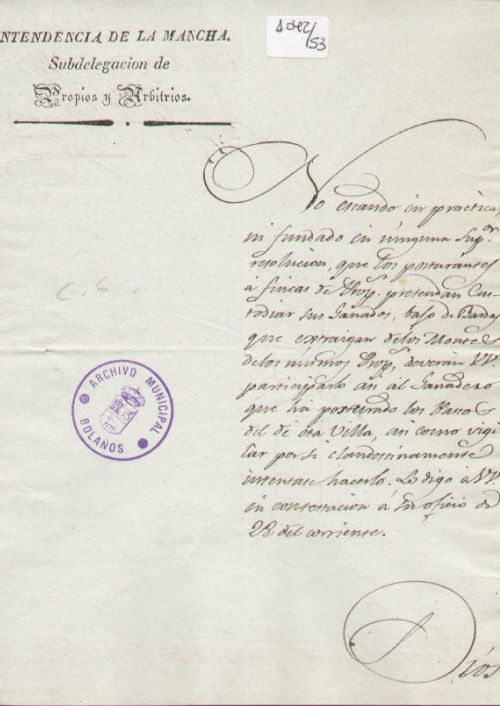 INTENDENCIA DE LA MANCHA.
Subdelegacion de
Propios y Arbitrios.
53
No estando en practica,
ni fundado en ninguna Sup.or
resolucion, que los posturantes
á fincas de Prop.s pretendan Cus-
todiar sus Ganados, bajo de Bardas
que extraigan de los Montes
de los mismos Prop.s deverán VV.
participarlo asi al Ganadero
que ha posturado los Pastos
del de esa Villa, asi como vigi-
lar por si clandestinamente
intentase hacerlo. Lo digo á VV.
en contestacion á su oficio de
28. del corriente.
C. 6.
ARCHIVO MUNICIPAL
BOLAÑOS
Dios